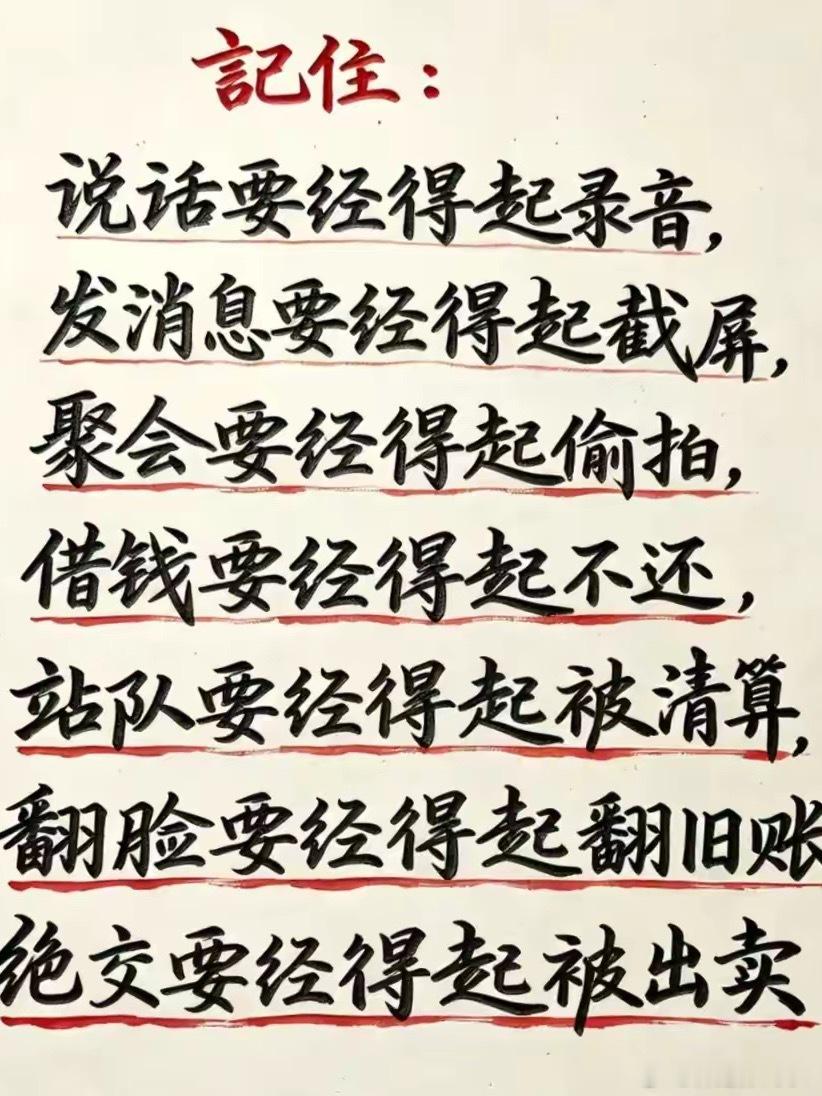 記住：
说话要经得起录音，
发消息要经得起截屏，
聚会要经得起偷拍，
借钱要经得起不还，
站队要经得起被清算，
翻脸要经得起翻旧账
绝交要经得起被出卖